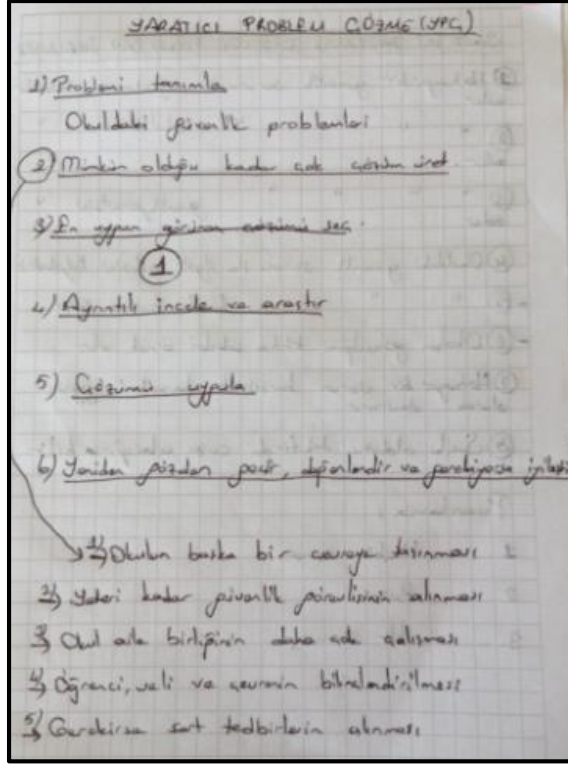 YARATICI PROBLEM ÇÖZME (YPÇ)
1) Problemi tanımla
Okuldaki güvenlik problemleri
2) Mümkün olduğu kadar çok çözüm üret.
3) En uygun görünen çözümü seç.
1
4) Ayrıntılı incele ve araştır
5) Çözümü uygula
6) Yeniden gözden geçir, değerlendir ve gerekiyorsa iyileştir
1) Okulun başka bir çevreye taşınması
2) Yeteri kadar güvenlik görevlisinin alınması
3) Okul aile birliğinin daha çok çalışması
4) Öğrenci, veli ve çevrenin bilinçlendirilmesi
5) Gerekirse sert tedbirlerin alınması